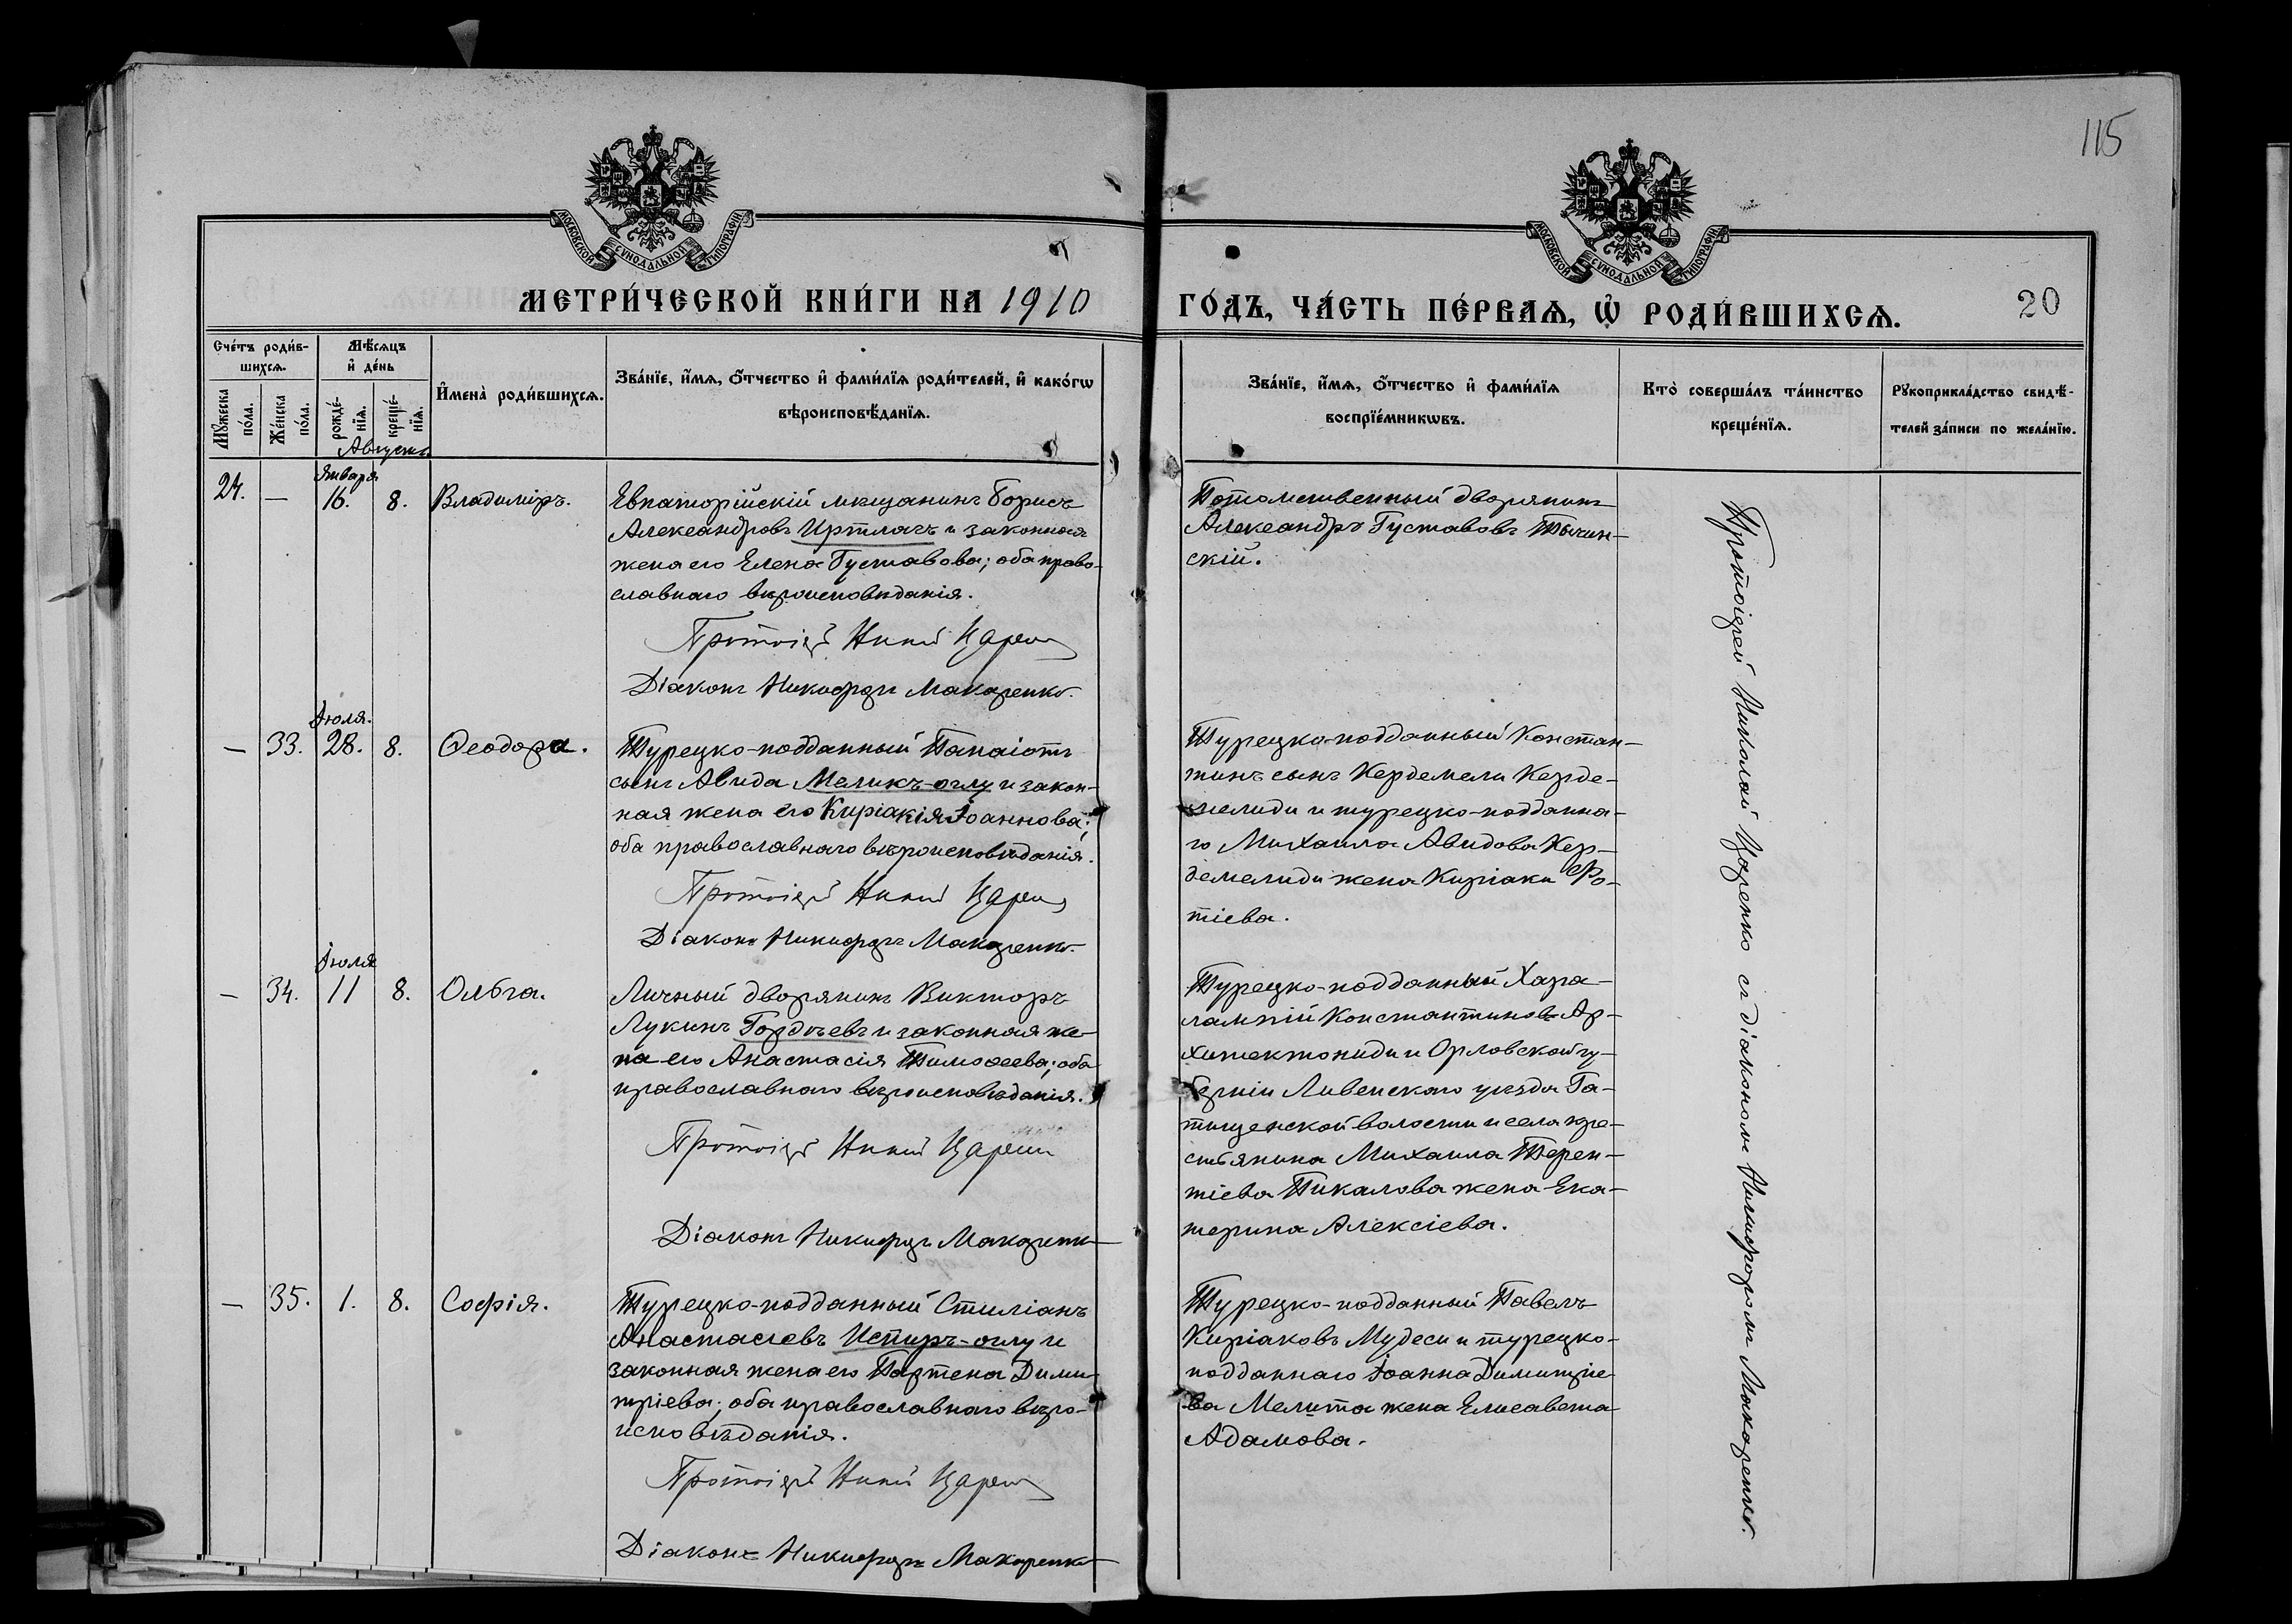 115
МОСКОВСКОЙ СУНОДАЛЬНОЙ ТИПОГРАФІИ
МОСКОВСКОЙ СУНОДАЛЬНОЙ ТИПОГРАФІИ
МЕТРИ́ЧЕСКОЙ КНИ́ГИ НА 1910
ГО́ДЪ, ЧА́СТЬ ПЕ́РВАѦ, Ѡ҆ РОДИ́ВШИХСѦ.
20
Сче́тъ роди́в-
шихсѧ.
Мꙋ́жеска
по́ла.
Же́нска
по́ла.
Мѣ́сѧцъ
и҆ де́нь
рожде́-
нїѧ.
креще́-
нїѧ.
И҆мена̀ роди́вшихсѧ.
Зва́нїе, и҆́мѧ, ѻ҆́тчество и҆ фами́лїѧ роди́телей, и҆ како́гѡ
вѣроисповѣ́данїѧ.
Зва́нїе, и҆́мѧ, ѻ҆́тчество и҆ фами́лїѧ
воспрїе́мникѡвъ.
Кто̀ соверша́лъ та́инство
креще́нїѧ.
Рꙋкоприкла́дство свидѣ́-
телей за́писи по жела́нїю.
Августъ
Января
24. — 16. 8. Владиміръ.
Евпаторійскій мѣщанинъ Борисъ
Александровъ Иртлачъ и законная
жена его Елена Густавова; оба право-
славнаго вѣроисповѣданія.
Протоіерей Никол Царен
Діаконъ Никифоръ Макаренко.
Потомственный дворянинъ
Александръ Густавовъ Тычин-
скій.
Іюля.
— 33. 28. 8. Ѳеодора.
Турецко-подданный Панаіотъ
сынъ Авида Меликъ-оглу и закон-
ная жена его Киріакія Іоаннова;
оба православнаго вѣроисповѣданія.
Протоіерей Никол Царен
Діаконъ Никифоръ Макаренко.
Турецко-подданный Констан-
тинъ сынъ Кердемели Керде-
мелиди и турецко-подданна-
го Михаила Авидова Кер-
демелиди жена Киріаки Фо-
тіева.
Іюля
— 34. 11 8. Ольга.
Личный дворянинъ Викторъ
Лукинъ Гордѣевъ и законная же-
на его Анастасія Тимоѳеева; оба
православнаго вѣроисповѣданія.
Протоіерей Никол Царен
Діаконъ Никифоръ Макаренко
Турецко-подданный Хара-
лампій Константиновъ Ар-
хитектониди и Орловской гу-
берніи Ливенскаго уѣзда Га-
тищенской волости и села кре-
стьянина Михаила Терен-
тіева Пикалова жена Ека-
терина Алексіева.
— 35. 1. 8. Софія.
Турецко-подданный Стиліанъ
Анастасіевъ Испиръ-оглу и
законная жена его Партена Дими-
тріева; оба православнаго вѣро-
исповѣданія.
Протоіерей Никол Царен
Діаконъ Никифоръ Макаренко
Турецко-подданный Павелъ
Киріаковъ Мудеси и турецко-
подданнаго Іоанна Димитріе-
ва Мелита жена Елисавета
Адамова.
Протоіерей Николай Царенко съ діакономъ Никифоромъ Макаренко.